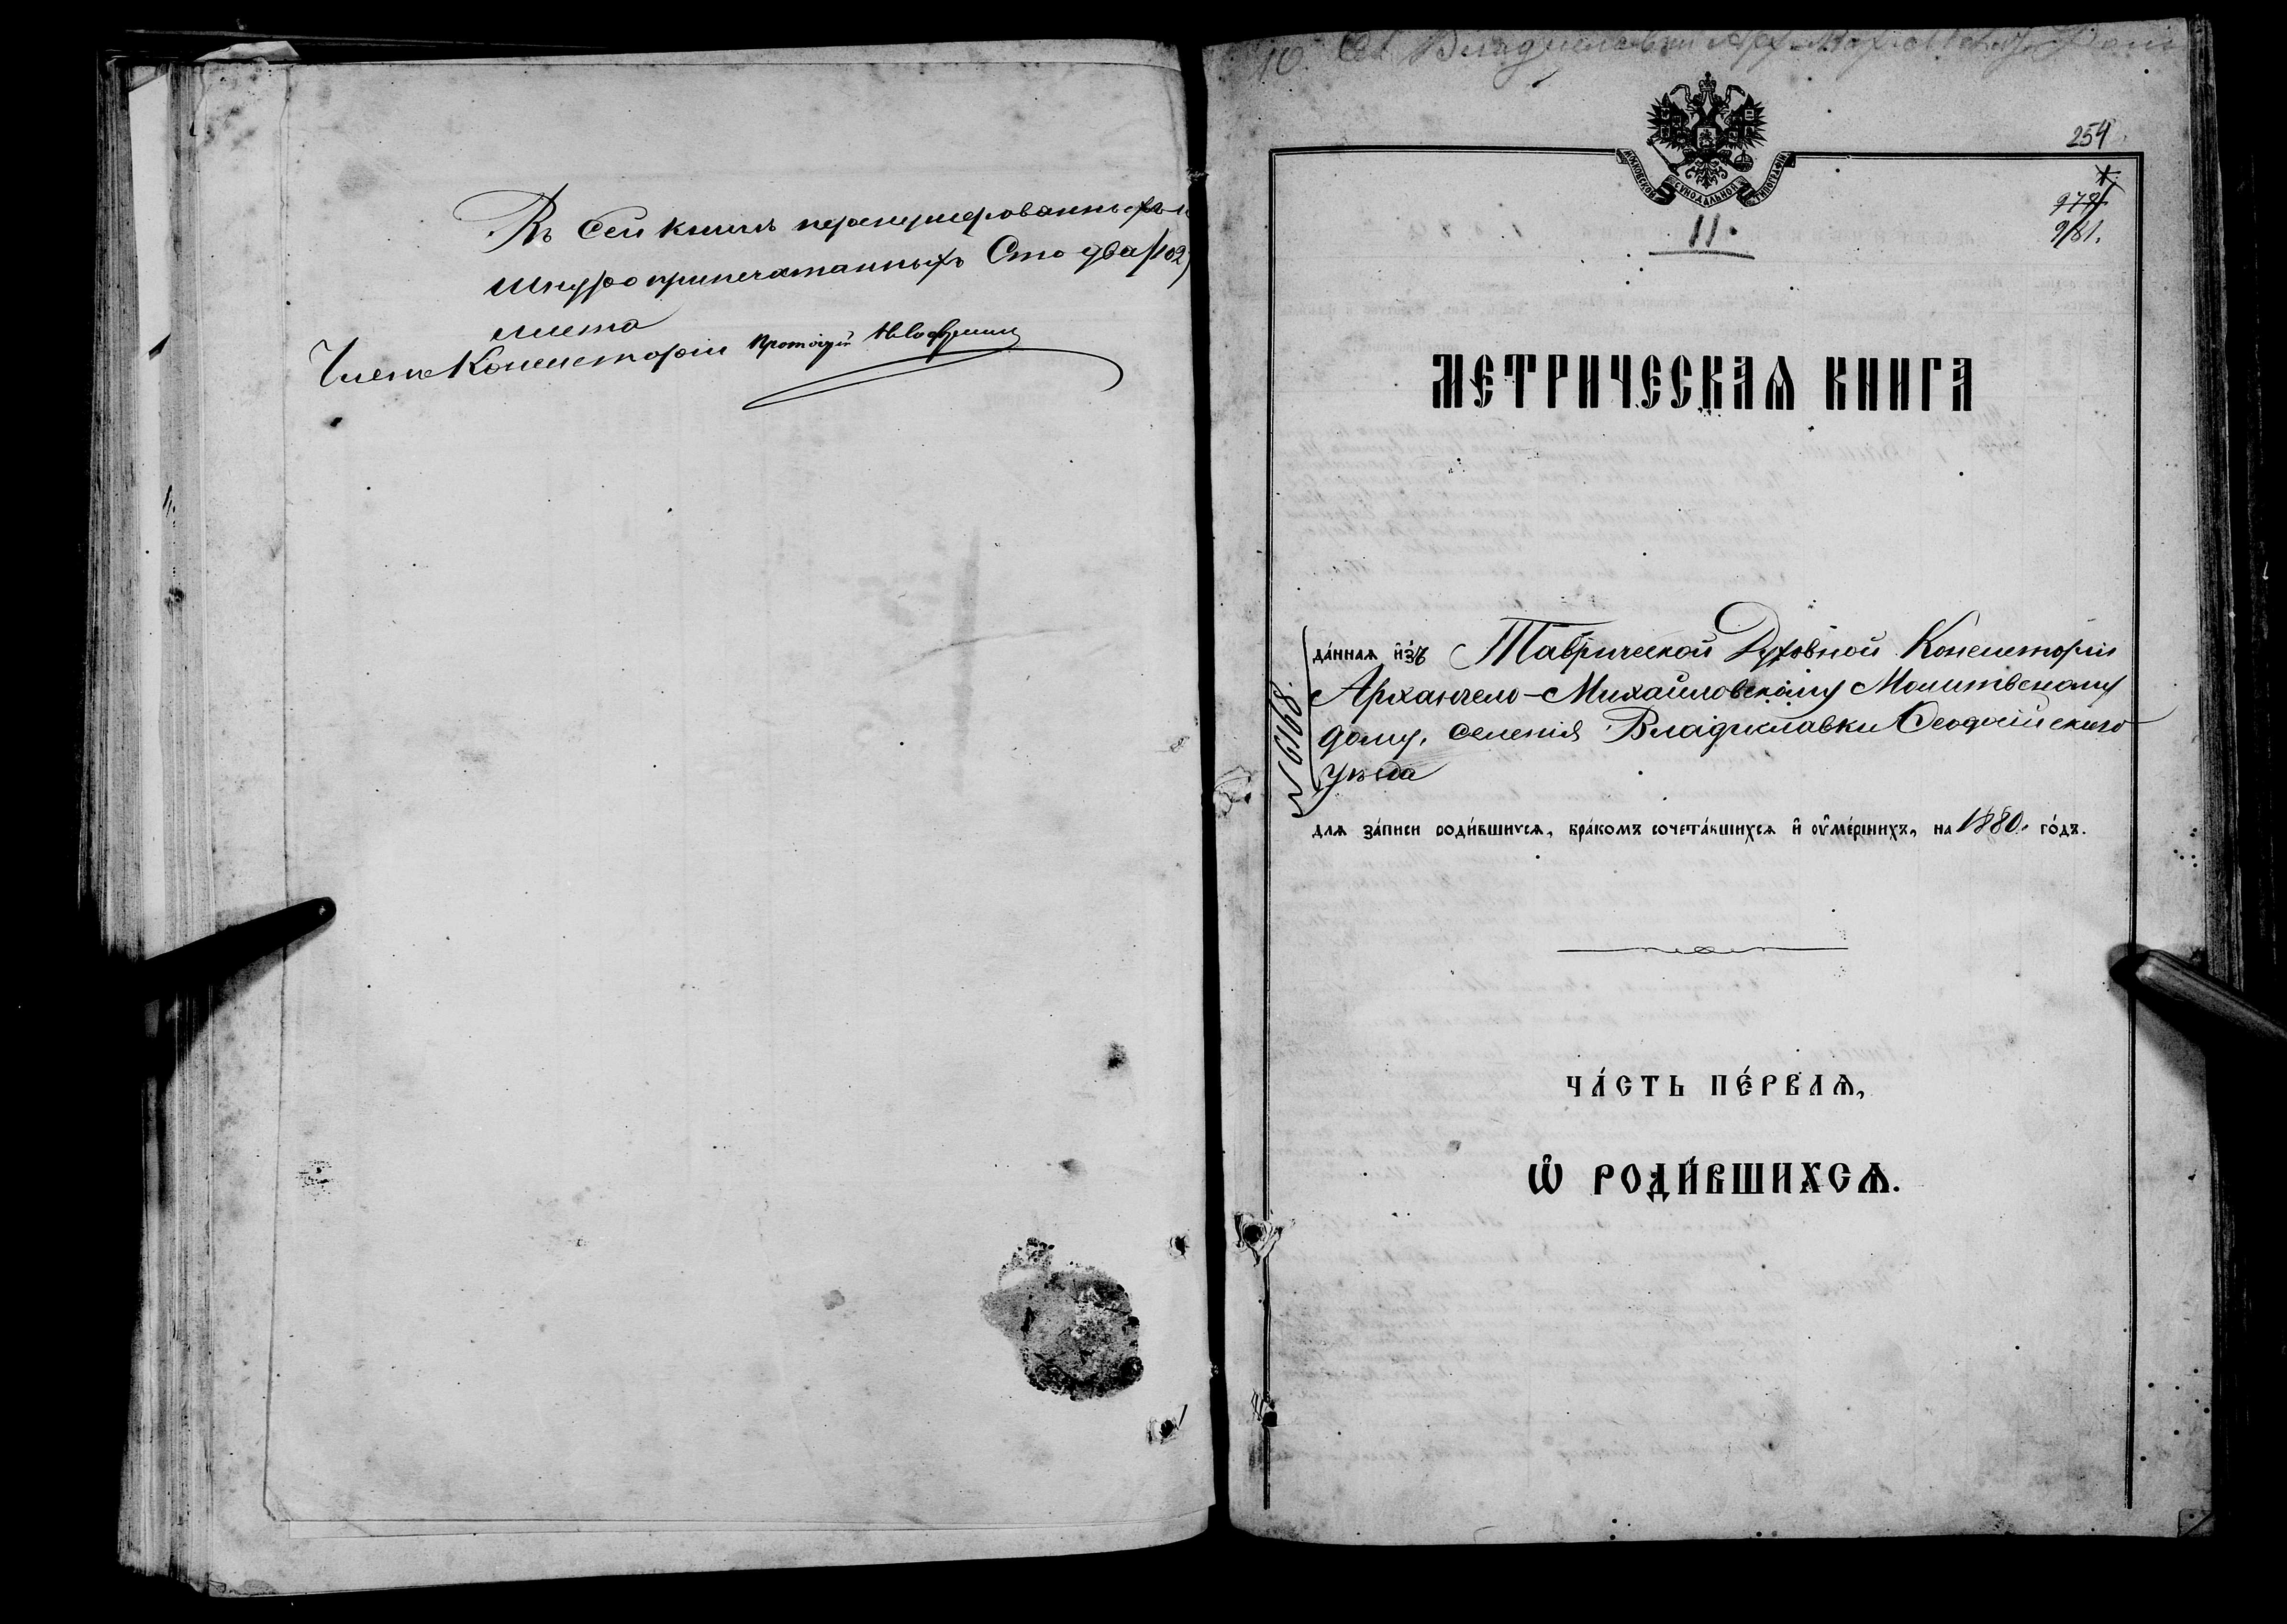 Въ сей книгѣ перенумерованныхъ и
шнуроприпечатанныхъ Сто два /102/
листа
Членъ Консисторіи Протоіерей
10. Владиславки
254
978
981.
МОСКОВСКОЙ СѴНОДАЛЬНОЙ ТИПОГРАФІИ
11.
МЕТРИЧЕСКАѦ КНИГА
да́ннаѧ и҆з̾ Таврической Духовной Консисторіи
Архангело-Михайловскому Молитвенному
дому, селенія Владиславки Ѳеодосійскаго
уѣзда
№ 6168.
длѧ за́писи роди́вшихсѧ, бра́комъ сочета́вшихсѧ и҆ ᲂу҆ме́ршихъ, на 1880. го́дъ.
ЧА́СТЬ ПЕ́РВАѦ,
Ѽ РОДИ́ВШИХСѦ.